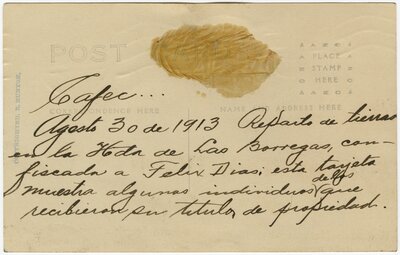 POST
PLACE
STAMP
HERE
CORRESPONDENCE HERE
NAME AND ADDRESS HERE
R. RUNYON,
Cafec...
Agosto 30 de 1913 Reparto de tierras
en la Hda de Las Borregas, con-
fiscada a Felix Dias; esta tarjeta
muestra algunos individuos de los que
recibieron su titulo, de propiedad.